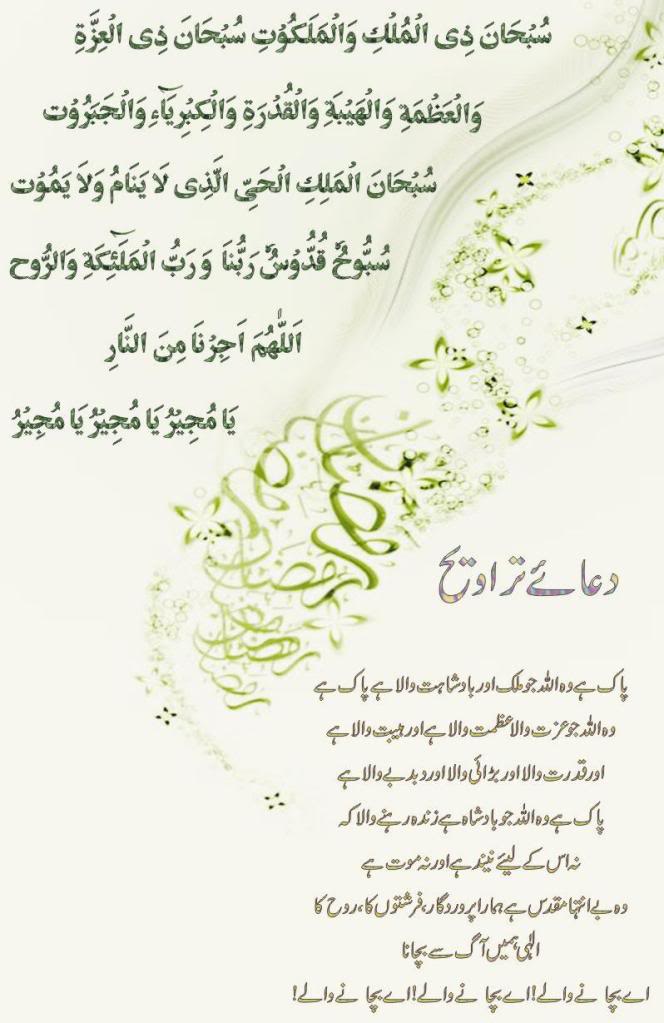 سُبْحَانَ ذِی الْمُلْكِ وَالْمَلَكُوْتِ سُبْحَانَ ذِی الْعِزَّةِ
وَالْعَظْمَةِ وَالْهَيْبَةِ وَالْقُدْرَةِ وَالْكِبْرِيَآءِ وَالْجَبَرُوْت
سُبْحَانَ الْمَلِكِ الْحَیِّ الَّذِی لَا يَنَامُ وَلَا يَمُوْت
سُبُّوحٌ قُدُّوْسٌ رَبُّنَا وَ رَبُّ الْمَلٰٓئِكَةِ وَالرُّوح
اَللّٰهُمَ اَجِرْنَا مِنَ النَّارِ
يَا مُجِيْرُ يَا مُجِيْرُ يَا مُجِيْرُ
رمضان
رمضان
دعائے تراویح
پاک ہے وہ اللہ جو ملک اور بادشاہت والا ہے پاک ہے
وہ اللہ جو عزت والا عظمت والا ہے اور ہیبت والا ہے
اور قدرت والا اور بڑائی والا اور دبدبے والا ہے
پاک ہے وہ اللہ جو بادشاہ ہے زندہ رہنے والا کہ
نہ اس کے لیئے نیند ہے اور نہ موت ہے
وہ بے انتہا مقدس ہے ہمارا پروردگار، فرشتوں کا، روح کا
الٰہی ہمیں آگ سے بچانا
اے بچا نے والے! اے بچا نے والے! اے بچا نے والے!